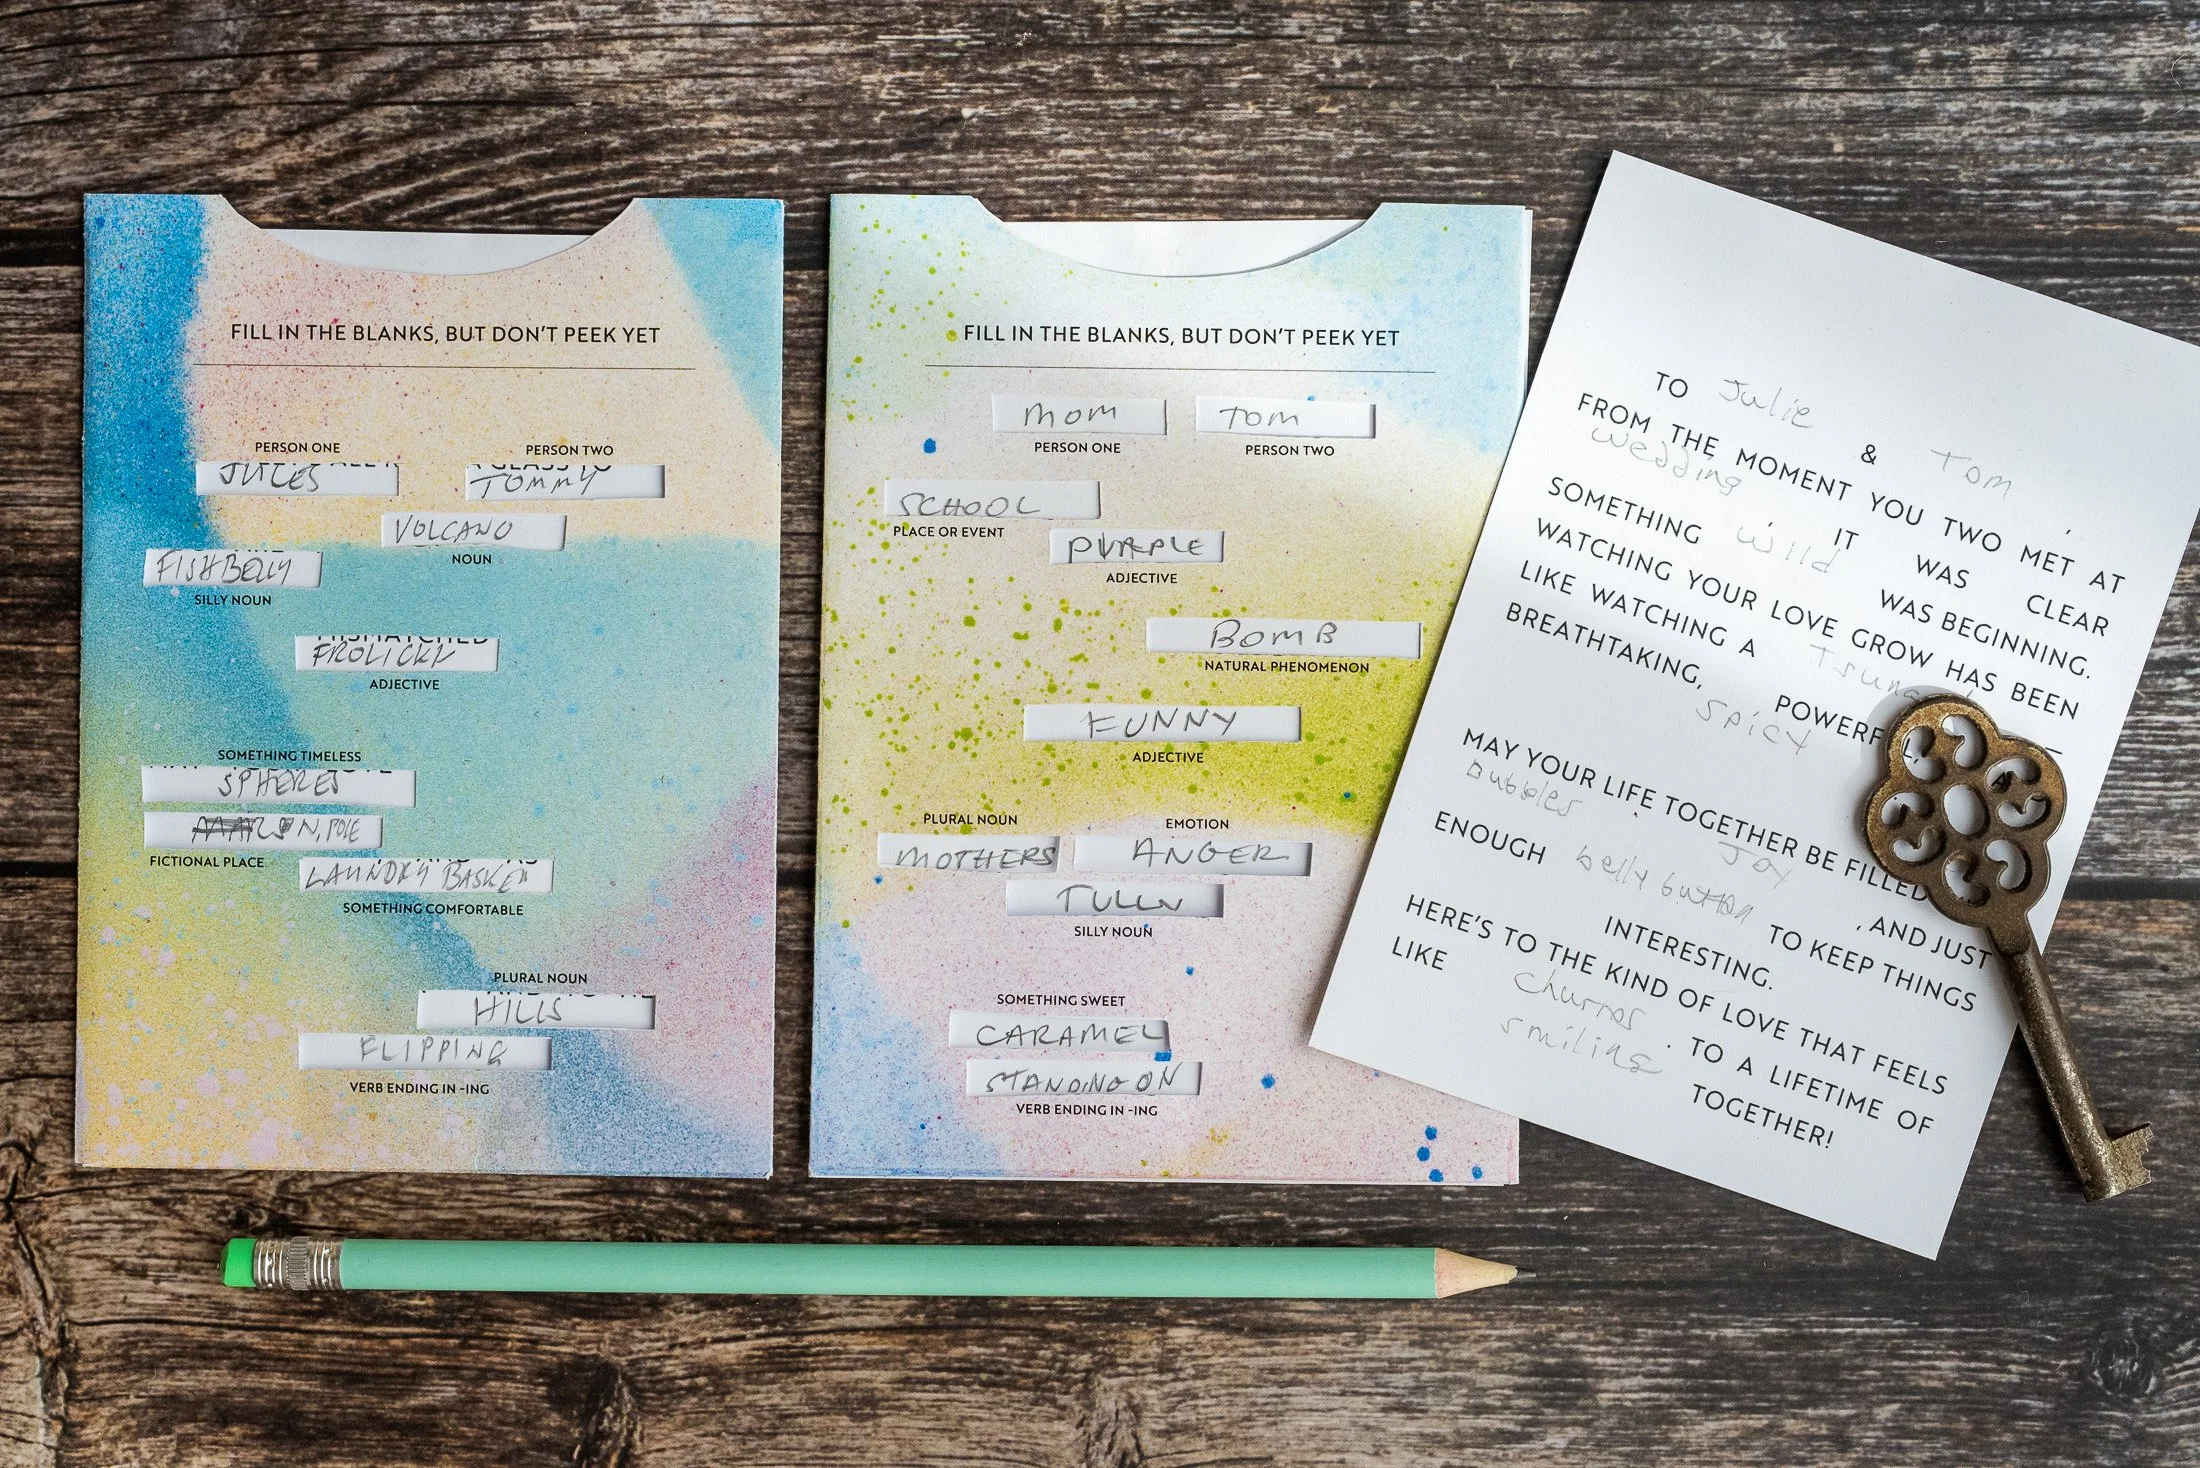 FILL IN THE BLANKS, BUT DON'T PEEK YET
PERSON ONE PERSON TWO
JULES TOMMY
VOLCANO
NOUN
FISHBELLY
SILLY NOUN
MISMATCHED
FROLICKY
ADJECTIVE
SOMETHING TIMELESS
SPHERES
N. POLE
FICTIONAL PLACE
LAUNDRY BASKET
SOMETHING COMFORTABLE
PLURAL NOUN
HILLS
FLIPPING
VERB ENDING IN -ING
FILL IN THE BLANKS, BUT DON'T PEEK YET
MOM TOM
PERSON ONE PERSON TWO
SCHOOL
PLACE OR EVENT
PURPLE
ADJECTIVE
BOMB
NATURAL PHENOMENON
FUNNY
ADJECTIVE
PLURAL NOUN EMOTION
MOTHERS ANGER
SILLY NOUN
SOMETHING SWEET
CARAMEL
STANDING ON
VERB ENDING IN -ING
TO Julie & Tom,
FROM THE MOMENT YOU TWO MET AT
wedding IT WAS CLEAR
SOMETHING wild WAS BEGINNING.
WATCHING YOUR LOVE GROW HAS BEEN
LIKE WATCHING A
BREATHTAKING, POWERFUL,
spicy
MAY YOUR LIFE TOGETHER BE FILLED
Bubbles Joy, AND JUST
ENOUGH belly button TO KEEP THINGS
INTERESTING.
HERE'S TO THE KIND OF LOVE THAT FEELS
LIKE churros. TO A LIFETIME OF
smiling TOGETHER!